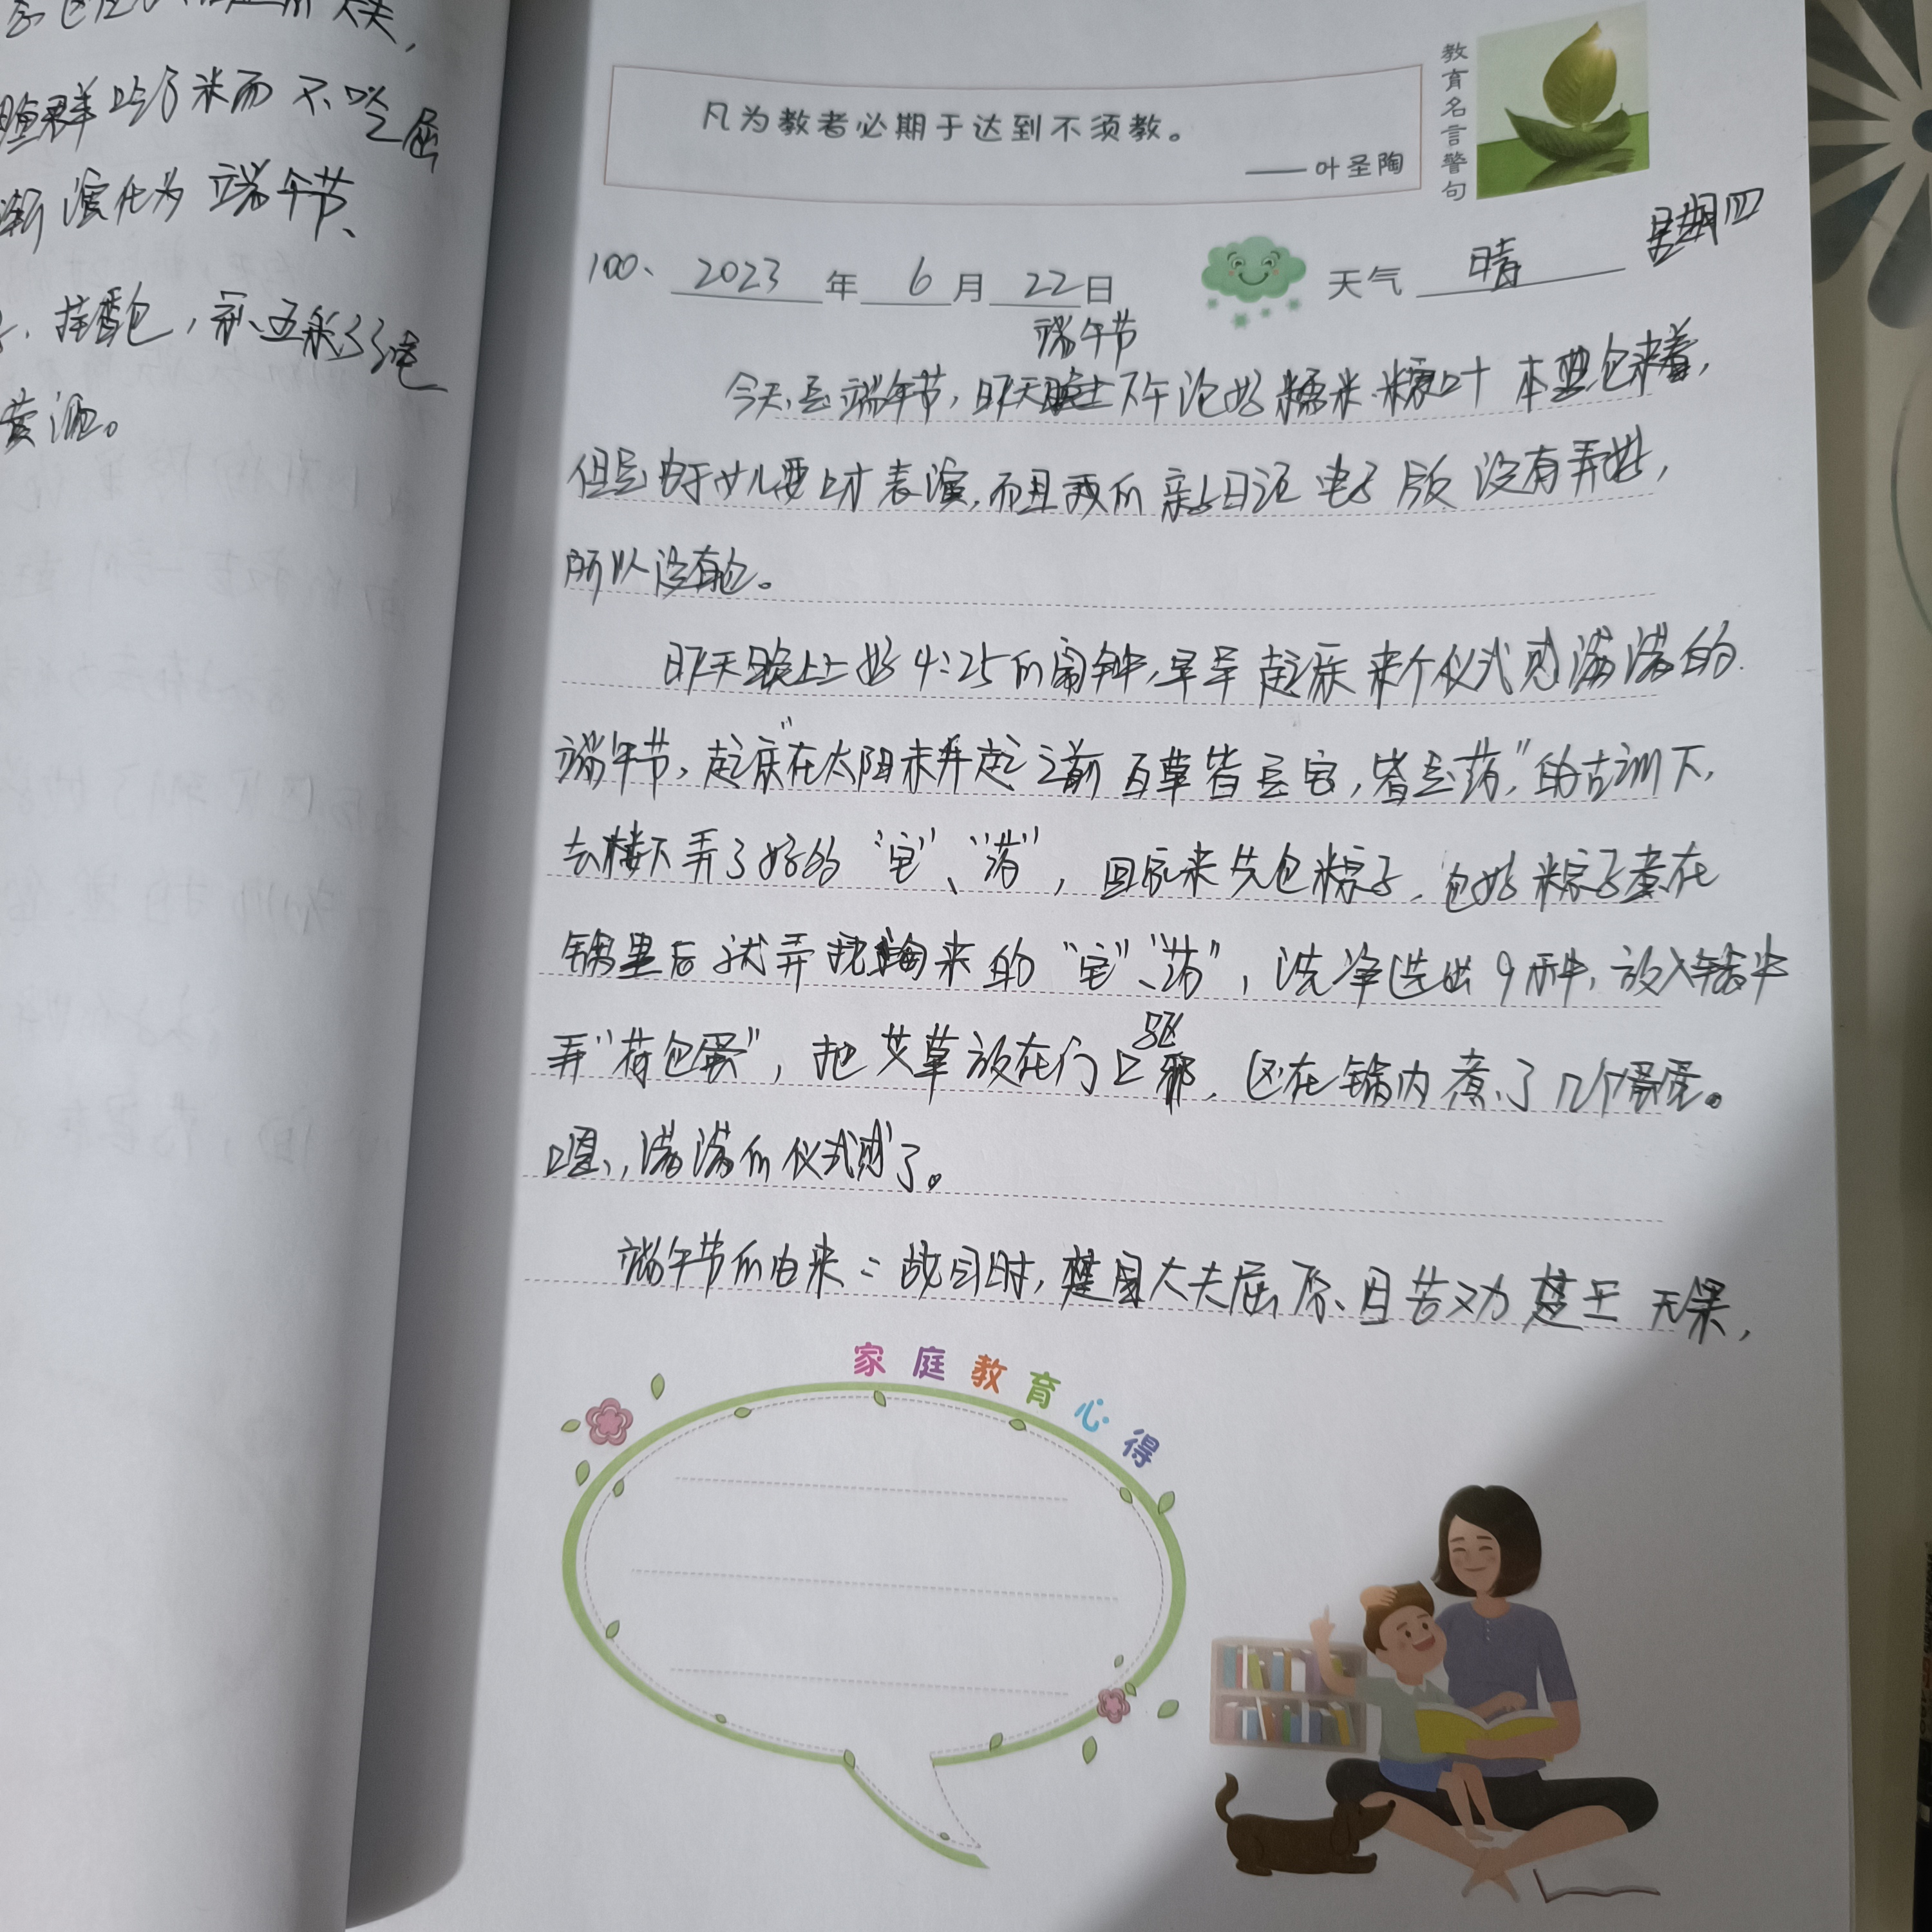 鱼群吃了米而不吃屈
渐演化为端午节、
挂香包，系五彩绳
黄酒。
凡为教者必期于达到不须教。
——叶圣陶
教育名言警句
100、2023年6月22日 天气 晴 星期四
端午节
今天是端午节，昨天下午泡好糯米.粽叶本要包来着，
但是由于女儿要上才表演，而且我的亲子日记电子版没有弄好，
所以没有包。
昨天晚上上好4:25的闹钟，早早起床来个仪式感满满的
端午节，起床“在太阳未升起之前百草皆是宝，皆是药，”的古训下，
去楼下弄了好的“宝”、“药”，回家来先包粽子，包好粽子煮在
锅里后就弄来的“宝”、“药”，洗净选出9种，放入锅中
弄“荷包蛋”，把艾草放在门口驱邪，还在锅内煮了几个蛋。
嗯，满满的仪式感了。
端午节的由来：战国时，楚国大夫屈原、因苦劝楚王无果，
家庭教育心得